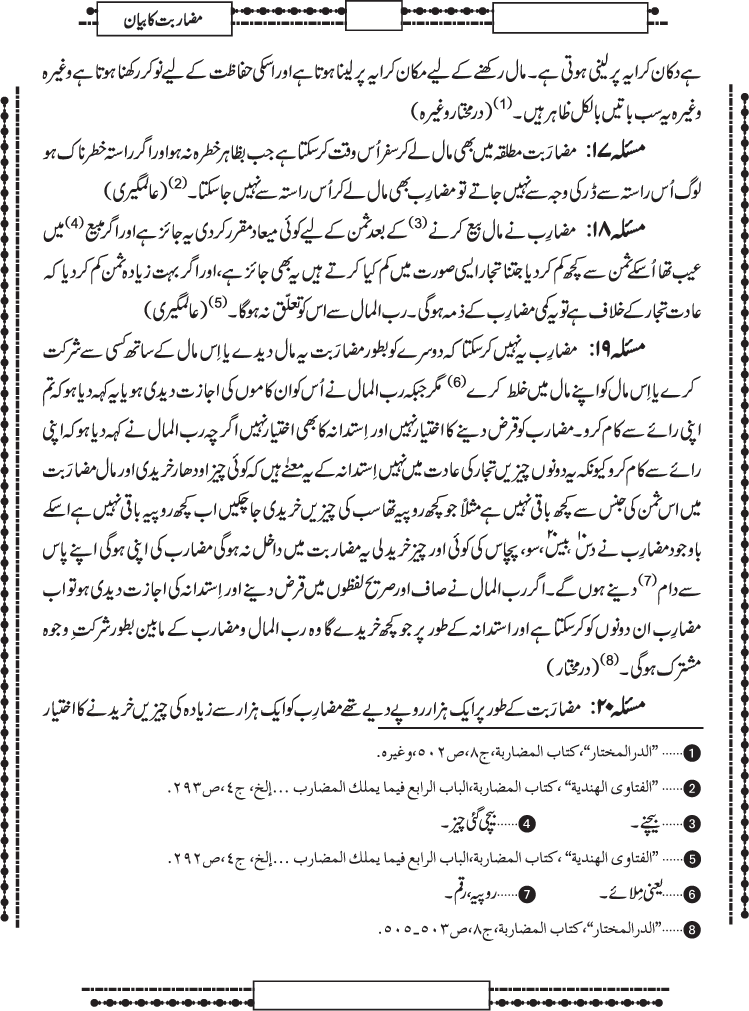 مضاربت کا بیان
ہے دکان کرایہ پر لینی ہوتی ہے۔ مال رکھنے کے لیے مکان کرایہ پر لینا ہوتا ہے اور اسکی حفاظت کے لیے نوکر رکھنا ہوتا ہے وغیرہ
وغیرہ یہ سب باتیں بالکل ظاہر ہیں۔(1) (درمختار وغیرہ)
مسئلہ ۱۷: مضارَبت مطلقہ میں بھی مال لے کر سفر اُس وقت کرسکتا ہے جب بظاہر خطرہ نہ ہو اور اگر راستہ خطرناک ہو
لوگ اُس راستہ سے ڈر کی وجہ سے نہیں جاتے تو مضارِب بھی مال لے کر اُس راستہ سے نہیں جاسکتا۔(2) (عالمگیری)
مسئلہ ۱۸: مضارِب نے مال بیع کرنے(3) کے بعد ثمن کے لیے کوئی میعاد مقرر کردی یہ جائز ہے اور اگر مبیع(4) میں
عیب تھا اُسکے ثمن سے کچھ کم کردیا جتنا تجار ایسی صورت میں کم کیا کرتے ہیں یہ بھی جائز ہے، اور اگر بہت زیادہ ثمن کم کردیا کہ
عادت تجار کے خلاف ہے تو یہ کمی مضارِب کے ذمہ ہوگی۔ رب المال سے اس کو تعلّق نہ ہوگا۔(5) (عالمگیری)
مسئلہ ۱۹: مضارِب یہ نہیں کرسکتا کہ دوسرے کو بطور مضارَبت یہ مال دیدے یا اِس مال کے ساتھ کسی سے شرکت
کرے یا اِس مال کو اپنے مال میں خلط کرے(6) مگر جبکہ رب المال نے اُس کو ان کاموں کی اجازت دیدی ہو یا یہ کہہ دیا ہو کہ تم
اپنی رائے سے کام کرو۔ مضارب کو قرض دینے کا اختیار نہیں اور اِستدانہ کا بھی اختیار نہیں اگرچہ رب المال نے کہہ دیا ہو کہ اپنی
رائے سے کام کرو کیونکہ یہ دونوں چیزیں تجار کی عادت میں نہیں اِستدانہ کے یہ معنے ہیں کہ کوئی چیز اودھار خریدی اور مال مضارَبت
میں اس ثمن کی جنس سے کچھ باقی نہیں ہے مثلاً جو کچھ روپیہ تھا سب کی چیزیں خریدی جاچکیں اب کچھ روپیہ باقی نہیں ہے اسکے
باوجود مضارِب نے دس۱۰، بیس۲۰، سو، پچاس کی کوئی اور چیز خرید لی یہ مضاربت میں داخل نہ ہوگی مضارب کی اپنی ہوگی اپنے پاس
سے دام(7) دینے ہوں گے۔ اگر رب المال نے صاف اور صریح لفظوں میں قرض دینے اور اِستدانہ کی اجازت دیدی ہو تو اب
مضارِب ان دونوں کو کرسکتا ہے اور استدانہ کے طور پر جو کچھ خریدے گا وہ رب المال و مضارب کے مابین بطور شرکتِ وجوہ
مشترک ہوگی۔(8) (درمختار)
مسئلہ ۲۰: مضارَبت کے طور پر ایک ہزار روپے دیے تھے مضارِب کو ایک ہزار سے زیادہ کی چیزیں خریدنے کا اختیار
1 ...... ”الدرالمختار“، کتاب المضاربة، ج٨، ص٥٠٢، وغیرہ.
2 ...... ”الفتاوی الھندیة“، کتاب المضاربة، الباب الرابع فیما یملک المضارب ...إلخ، ج٤، ص٢٩٣.
3 ...... بیچنے۔ 4 ...... بیچی گئی چیز۔
5 ...... ”الفتاوی الھندیة“، کتاب المضاربة، الباب الرابع فیما یملک المضارب ...إلخ، ج٤، ص٢٩٢.
6 ...... یعنی مِلائے۔ 7 ...... روپیہ، رقم۔
8 ...... ”الدرالمختار“، کتاب المضاربة، ج٨، ص٥٠٣-٥٠٥.